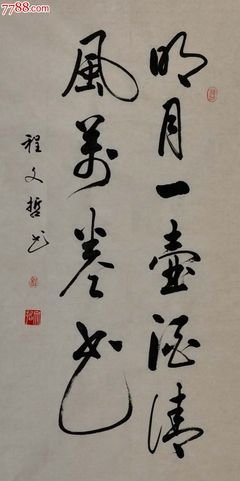 7788.com
明月一壺酒清
風萬卷書
程文哲书